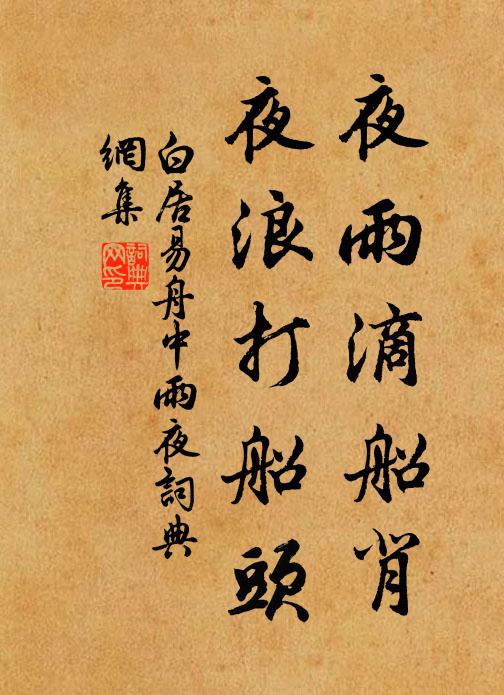 夜雨滴船背
夜浪打船頭
白居易舟中雨夜詞典
網集
詞典網印